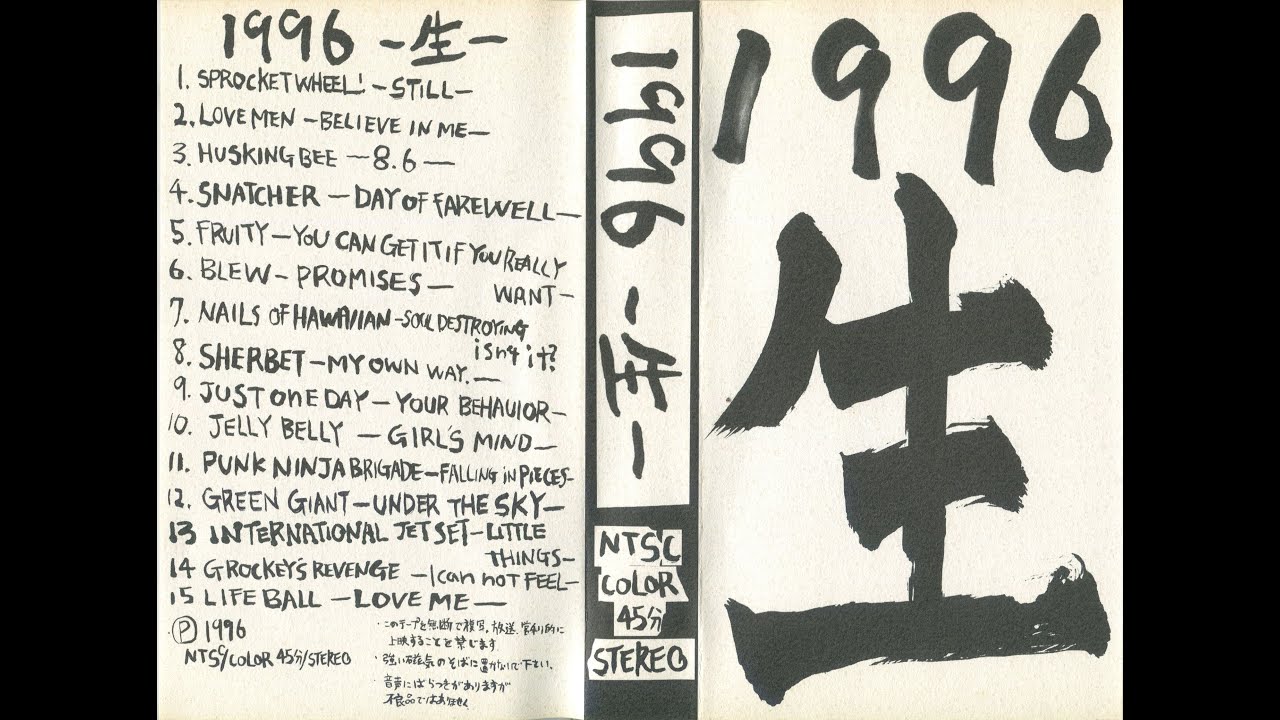 1996 -生-
1. SPROCKET WHEEL! -STILL-
2. LOVEMEN -BELIEVE IN ME-
3. HUSKING BEE -8.6-
4. SNATCHER -DAY OF FAREWELL-
5. FRUITY -YOU CAN GET IT IF YOU REALLY
WANT-
6. BLEW - PROMISES -
7. NAILS OF HAWAIIAN -SOUL DESTROYING
isn't it?
8. SHERBET -MY OWN WAY.-
9. JUST ONE DAY -YOUR BEHAVIOR-
10. JELLY BELLY -GIRL'S MIND-
11. PUNK NINJA BRIGADE -FALLING in PIECES-
12. GREEN GIANT -UNDER THE SKY-
13 INTERNATIONAL JET SET -LITTLE
THINGS-
14 GROCKEY'S REVENGE -I can not FEEL-
15 LIFE BALL -LOVE ME-
Ⓟ 1996
NTSC/COLOR 45分/STEREO
・このテープを無断で複写、放送、営利的に
上映することを禁じます
・強い磁気のそばに置かないで下さい。
・音声にばらつきがありますが
不良品ではありません
1996 -生-
NTSC
COLOR
45分
STEREO
1996
生